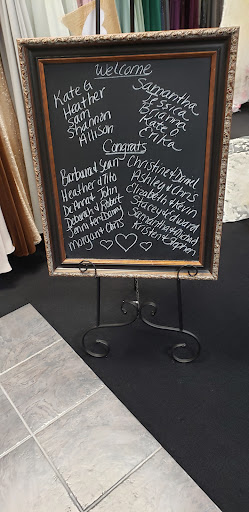 Welcome
Kate G
Heather
Sara
Shannon
Allison
Samantha
Jessica
Brianna
Kate J
Erika
Congrats
Barbara & Sean
Heather & Tito
DeAnna & John
Deborah & Robert
Jenna & Donny
Morgan & Chris
Christine & Daniel
Ashley & Chris
Elizabeth & Kevin
Stacey & Edward
Samantha & Daniel
Kristen & Stephen